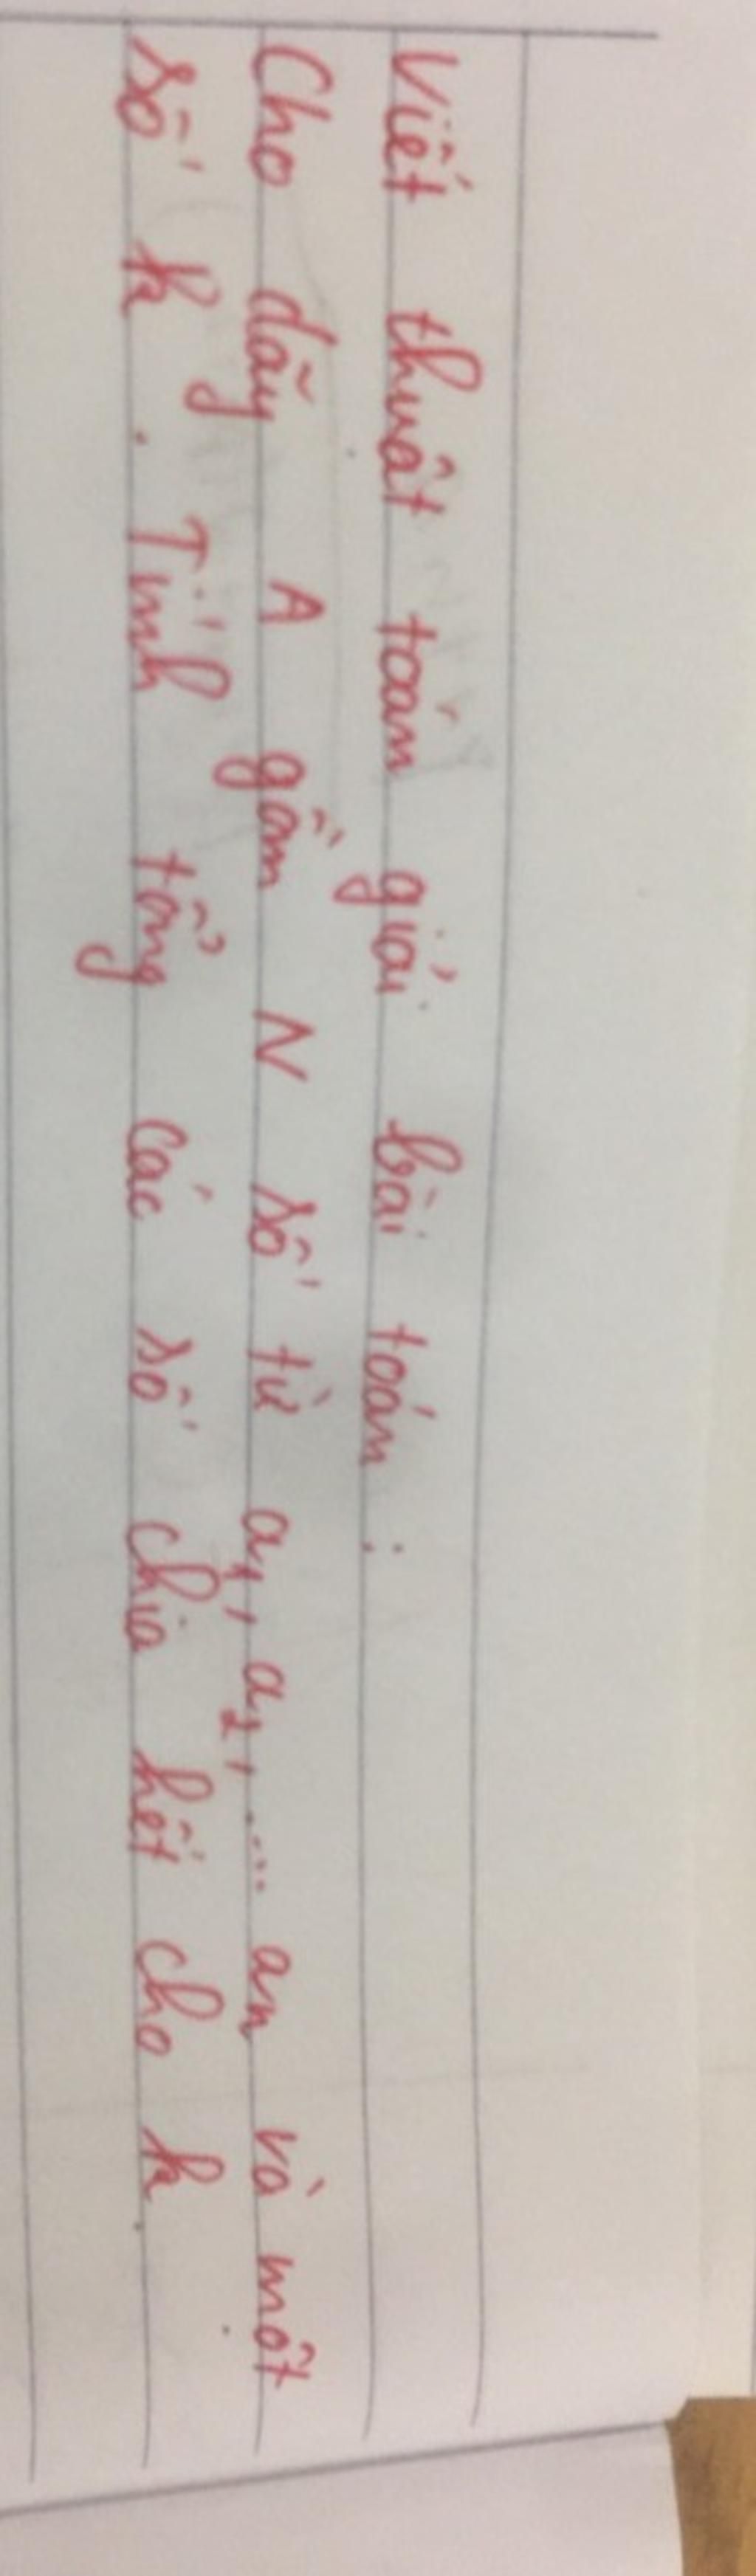 Viết thuật toán giải bài toán :
Cho dãy A gồm N số từ a1, a2, .... an và một
số k. Tính tổng các số chia hết cho k.